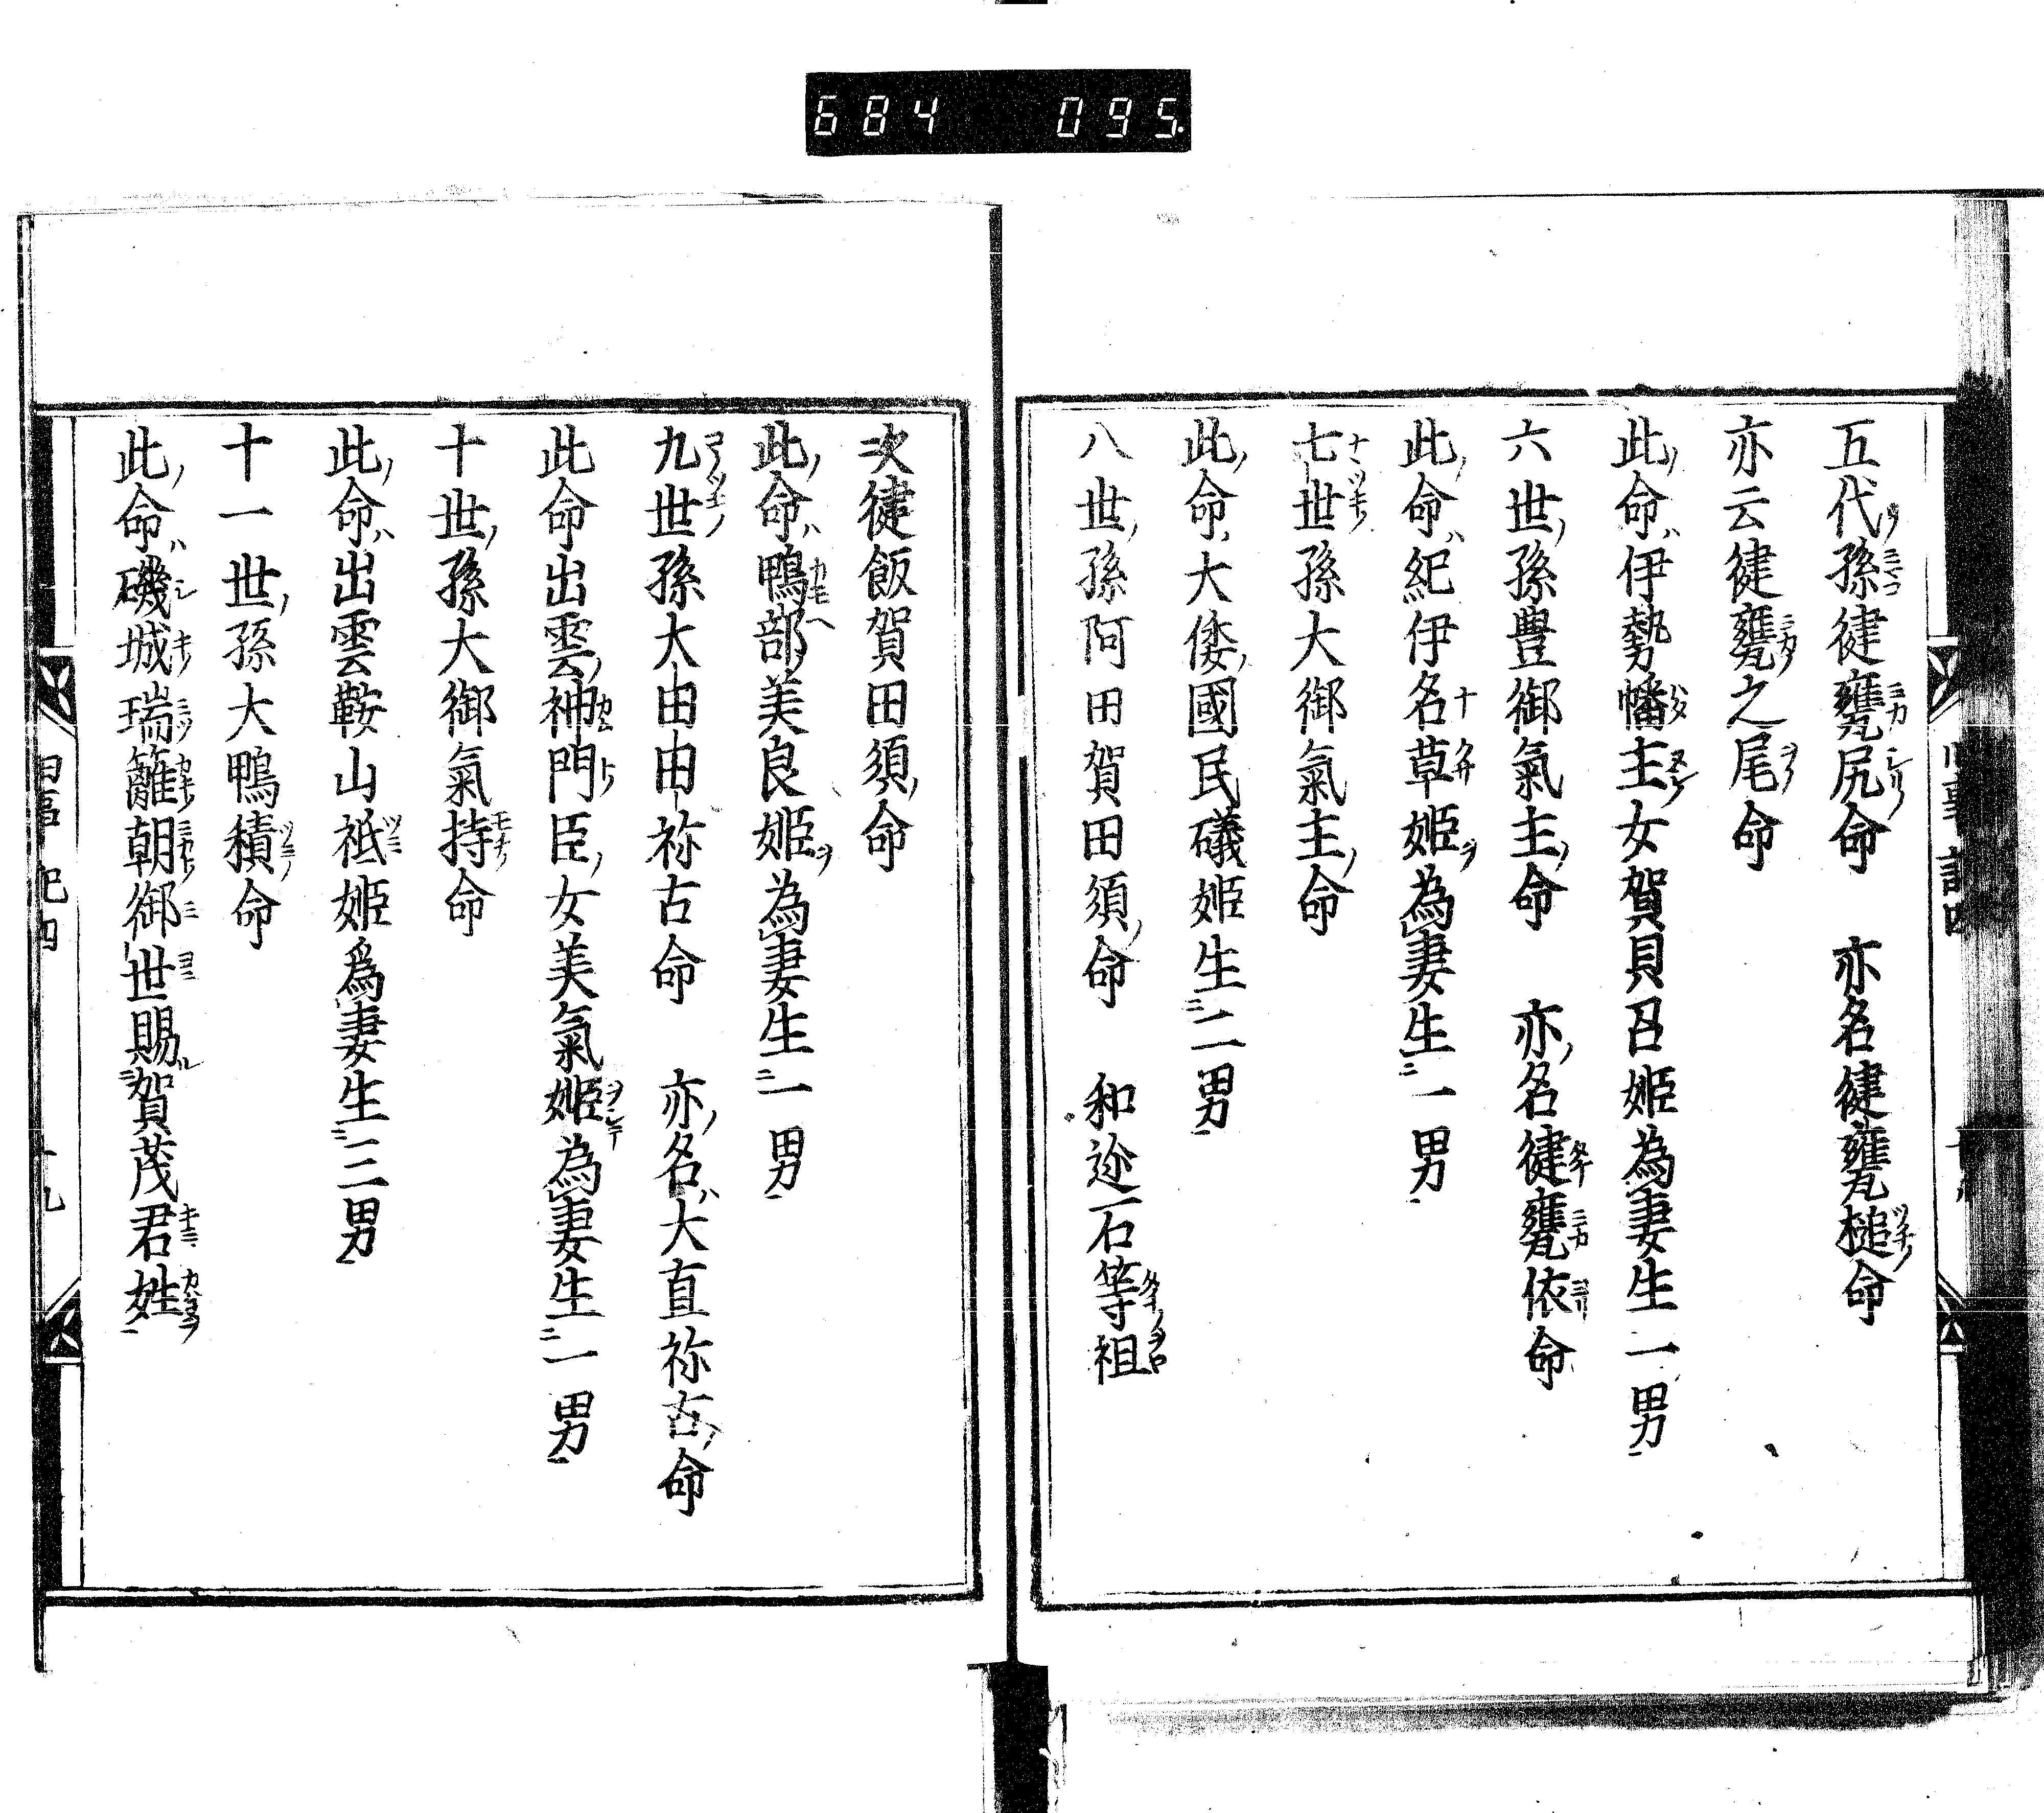 684 095
五代孫健甕尻命 亦名健甕槌命
亦云健甕之尾命
此命伊勢幡主女賀貝呂姫為妻生一男
六世孫豊御氣主命 亦名健甕依命
此命紀伊名草姫為妻生一男
七世孫大御氣主命
此命大倭國民礒姫生二男
八世孫阿田賀田須命 和迩石等祖
次健飯賀田須命
此命鴨部美良姫為妻生一男
九世孫大田田祢古命 亦名大直祢古命
此命出雲神門臣女美氣姫為妻生一男
十世孫大御氣持命
此命出雲鞍山祇姫爲妻生三男
十一世孫大鴨積命
此命磯城瑞籬朝御世賜賀茂君姓